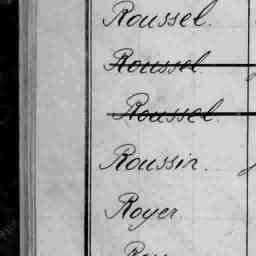 Roussel.
Roussel
Roussel.
Roussin.
Royer